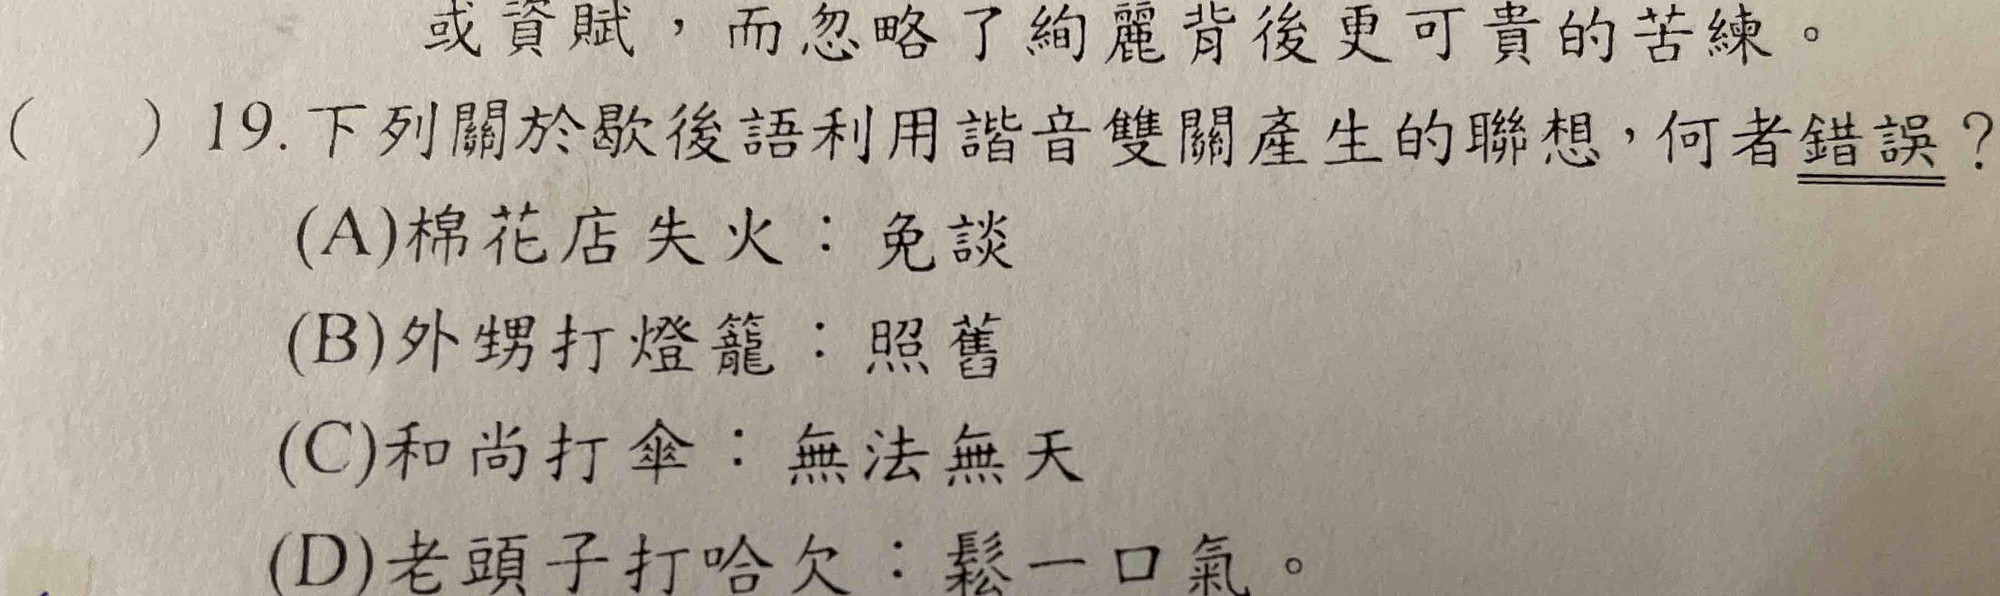 或資賦，而忽略了絢麗背後更可貴的苦練。
（　　）19.下列關於歇後語利用諧音雙關產生的聯想，何者錯誤？
(A)棉花店失火：免談
(B)外甥打燈籠：照舊
(C)和尚打傘：無法無天
(D)老頭子打哈欠：鬆一口氣。